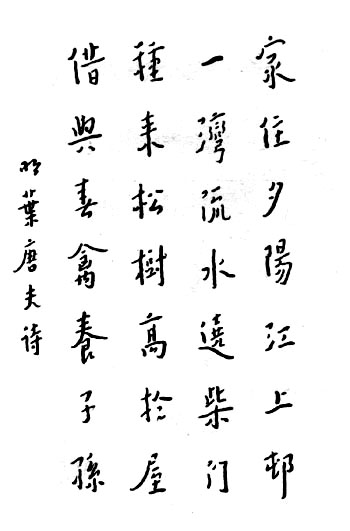 家住夕陽江上邨
一灣流水遶柴门
種来松樹高於屋
借與春禽養子孫
明葉唐夫诗